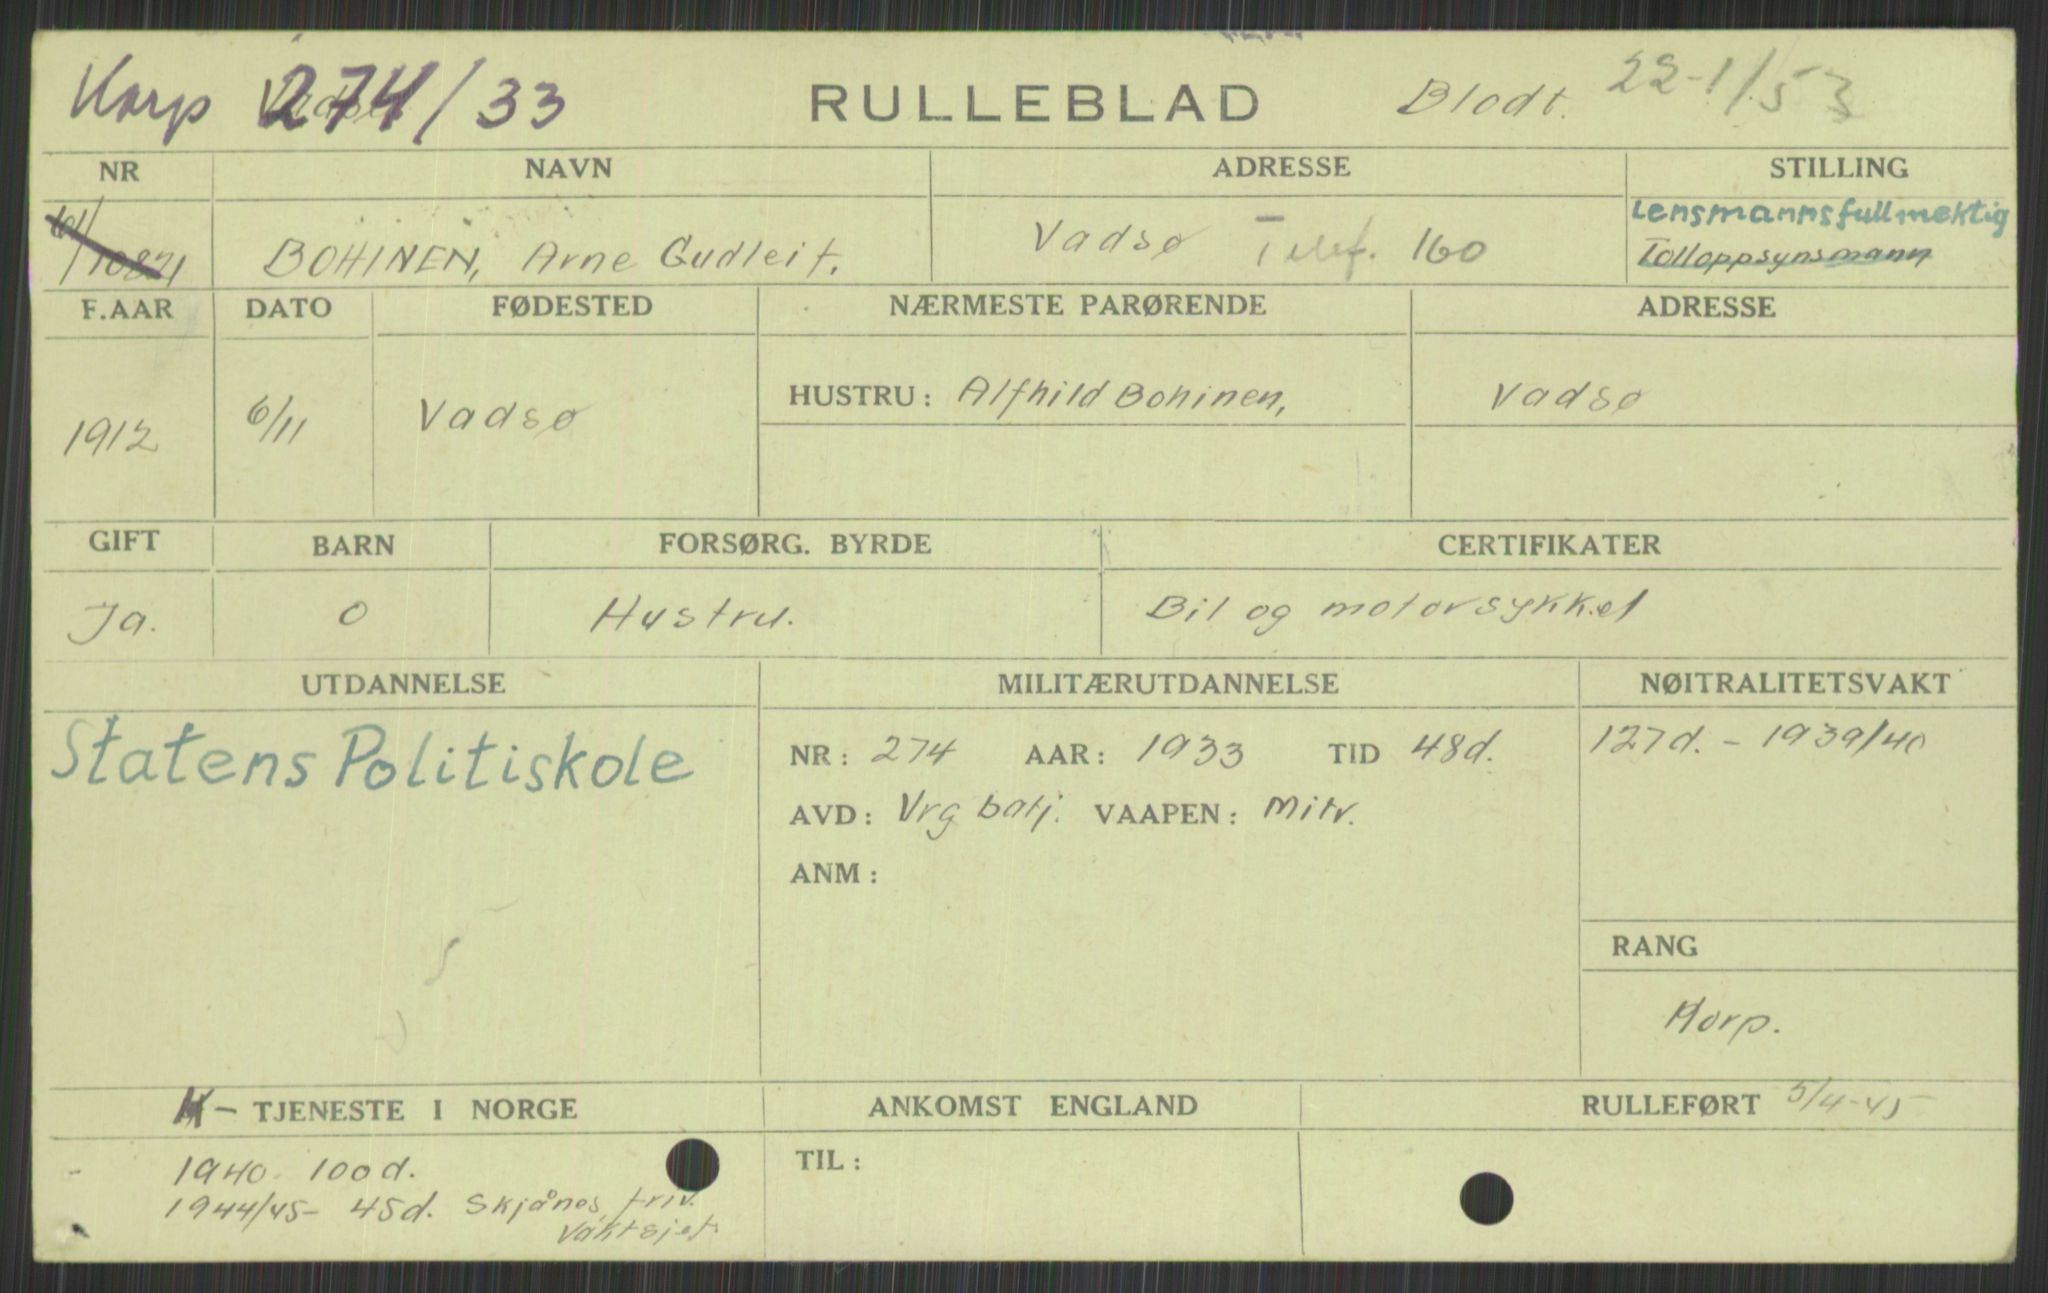 Korp 274/33 RULLEBLAD Blodt. 22-1/53
NR NAVN ADRESSE STILLING
Lensmannsfullmektig
BOHINEN, Arne Gudleit. Vadsø Telef. 160 Tolloppsynsmann
F.AAR DATO FØDESTED NÆRMESTE PARØRENDE ADRESSE
1912 6/11 Vadsø HUSTRU: Alfhild Bohinen, Vadsø
GIFT BARN FORSØRG. BYRDE CERTIFIKATER
Ja. 0 Hustru. Bil og motorsykkel
UTDANNELSE MILITÆRUTDANNELSE NØITRALITETSVAKT
Statens Politiskole NR: 274 AAR: 1933 TID 48d. 127d. - 1939/40
AVD: Vrg batj. VAAPEN: Mitr.
ANM:
RANG
Korp.
K- TJENESTE I NORGE ANKOMST ENGLAND RULLEFØRT 5/4-45
1940. 100d. TIL:
1944/45- 45d. Skjånes, friv.